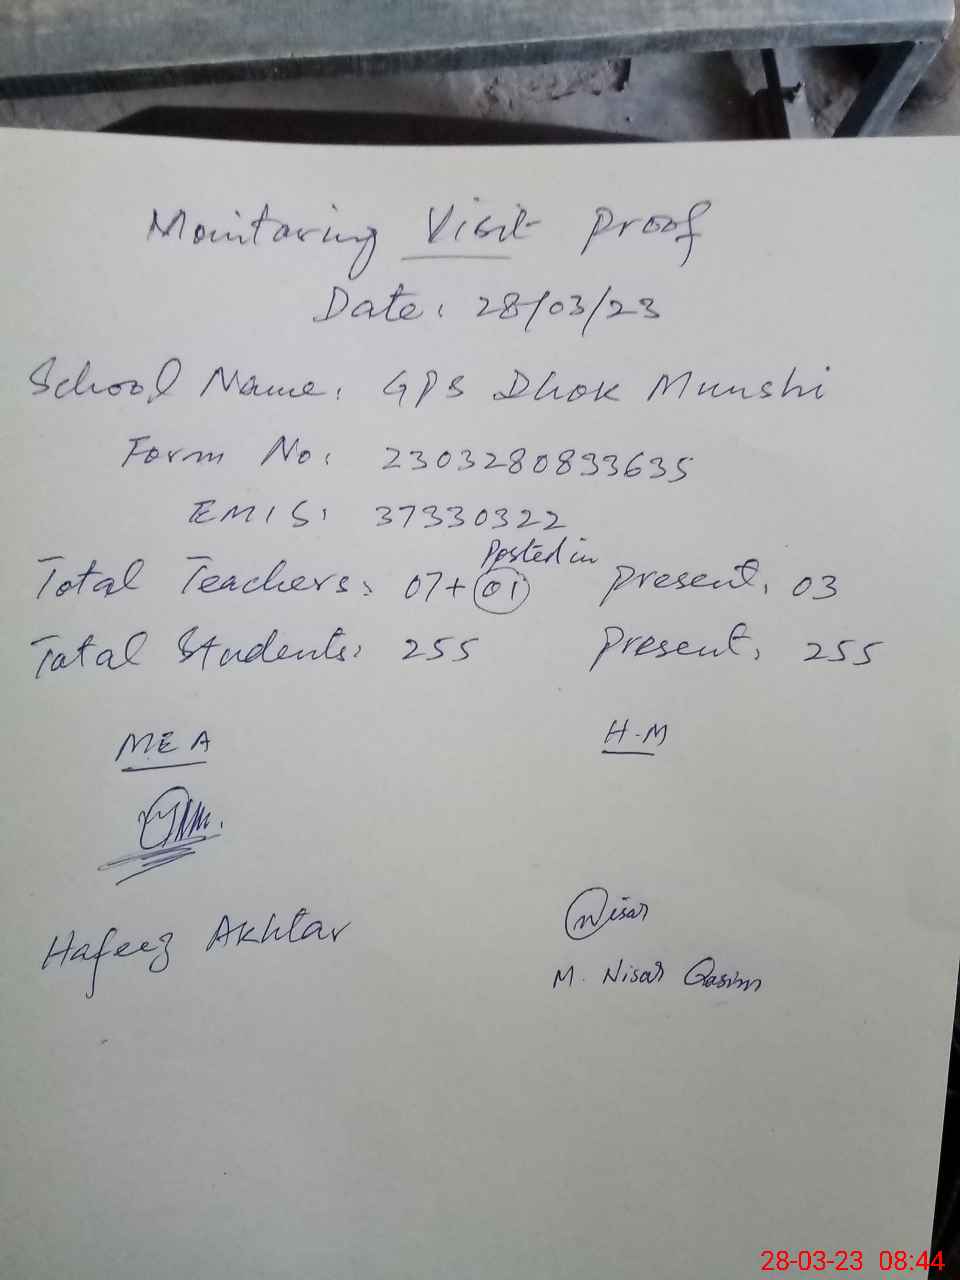 Monitoring Visit Proof
Date: 28/03/23
School Name: GPS Dhok Munshi
Form No: 2303280833635
EMIS: 37330322
Posted in
Total Teachers: 07+01 present: 03
Total Students: 255 present: 255
M.E A H-M
Nisar
Hafeez Akhtar
M. Nisar Qasim
28-03-23 08:44